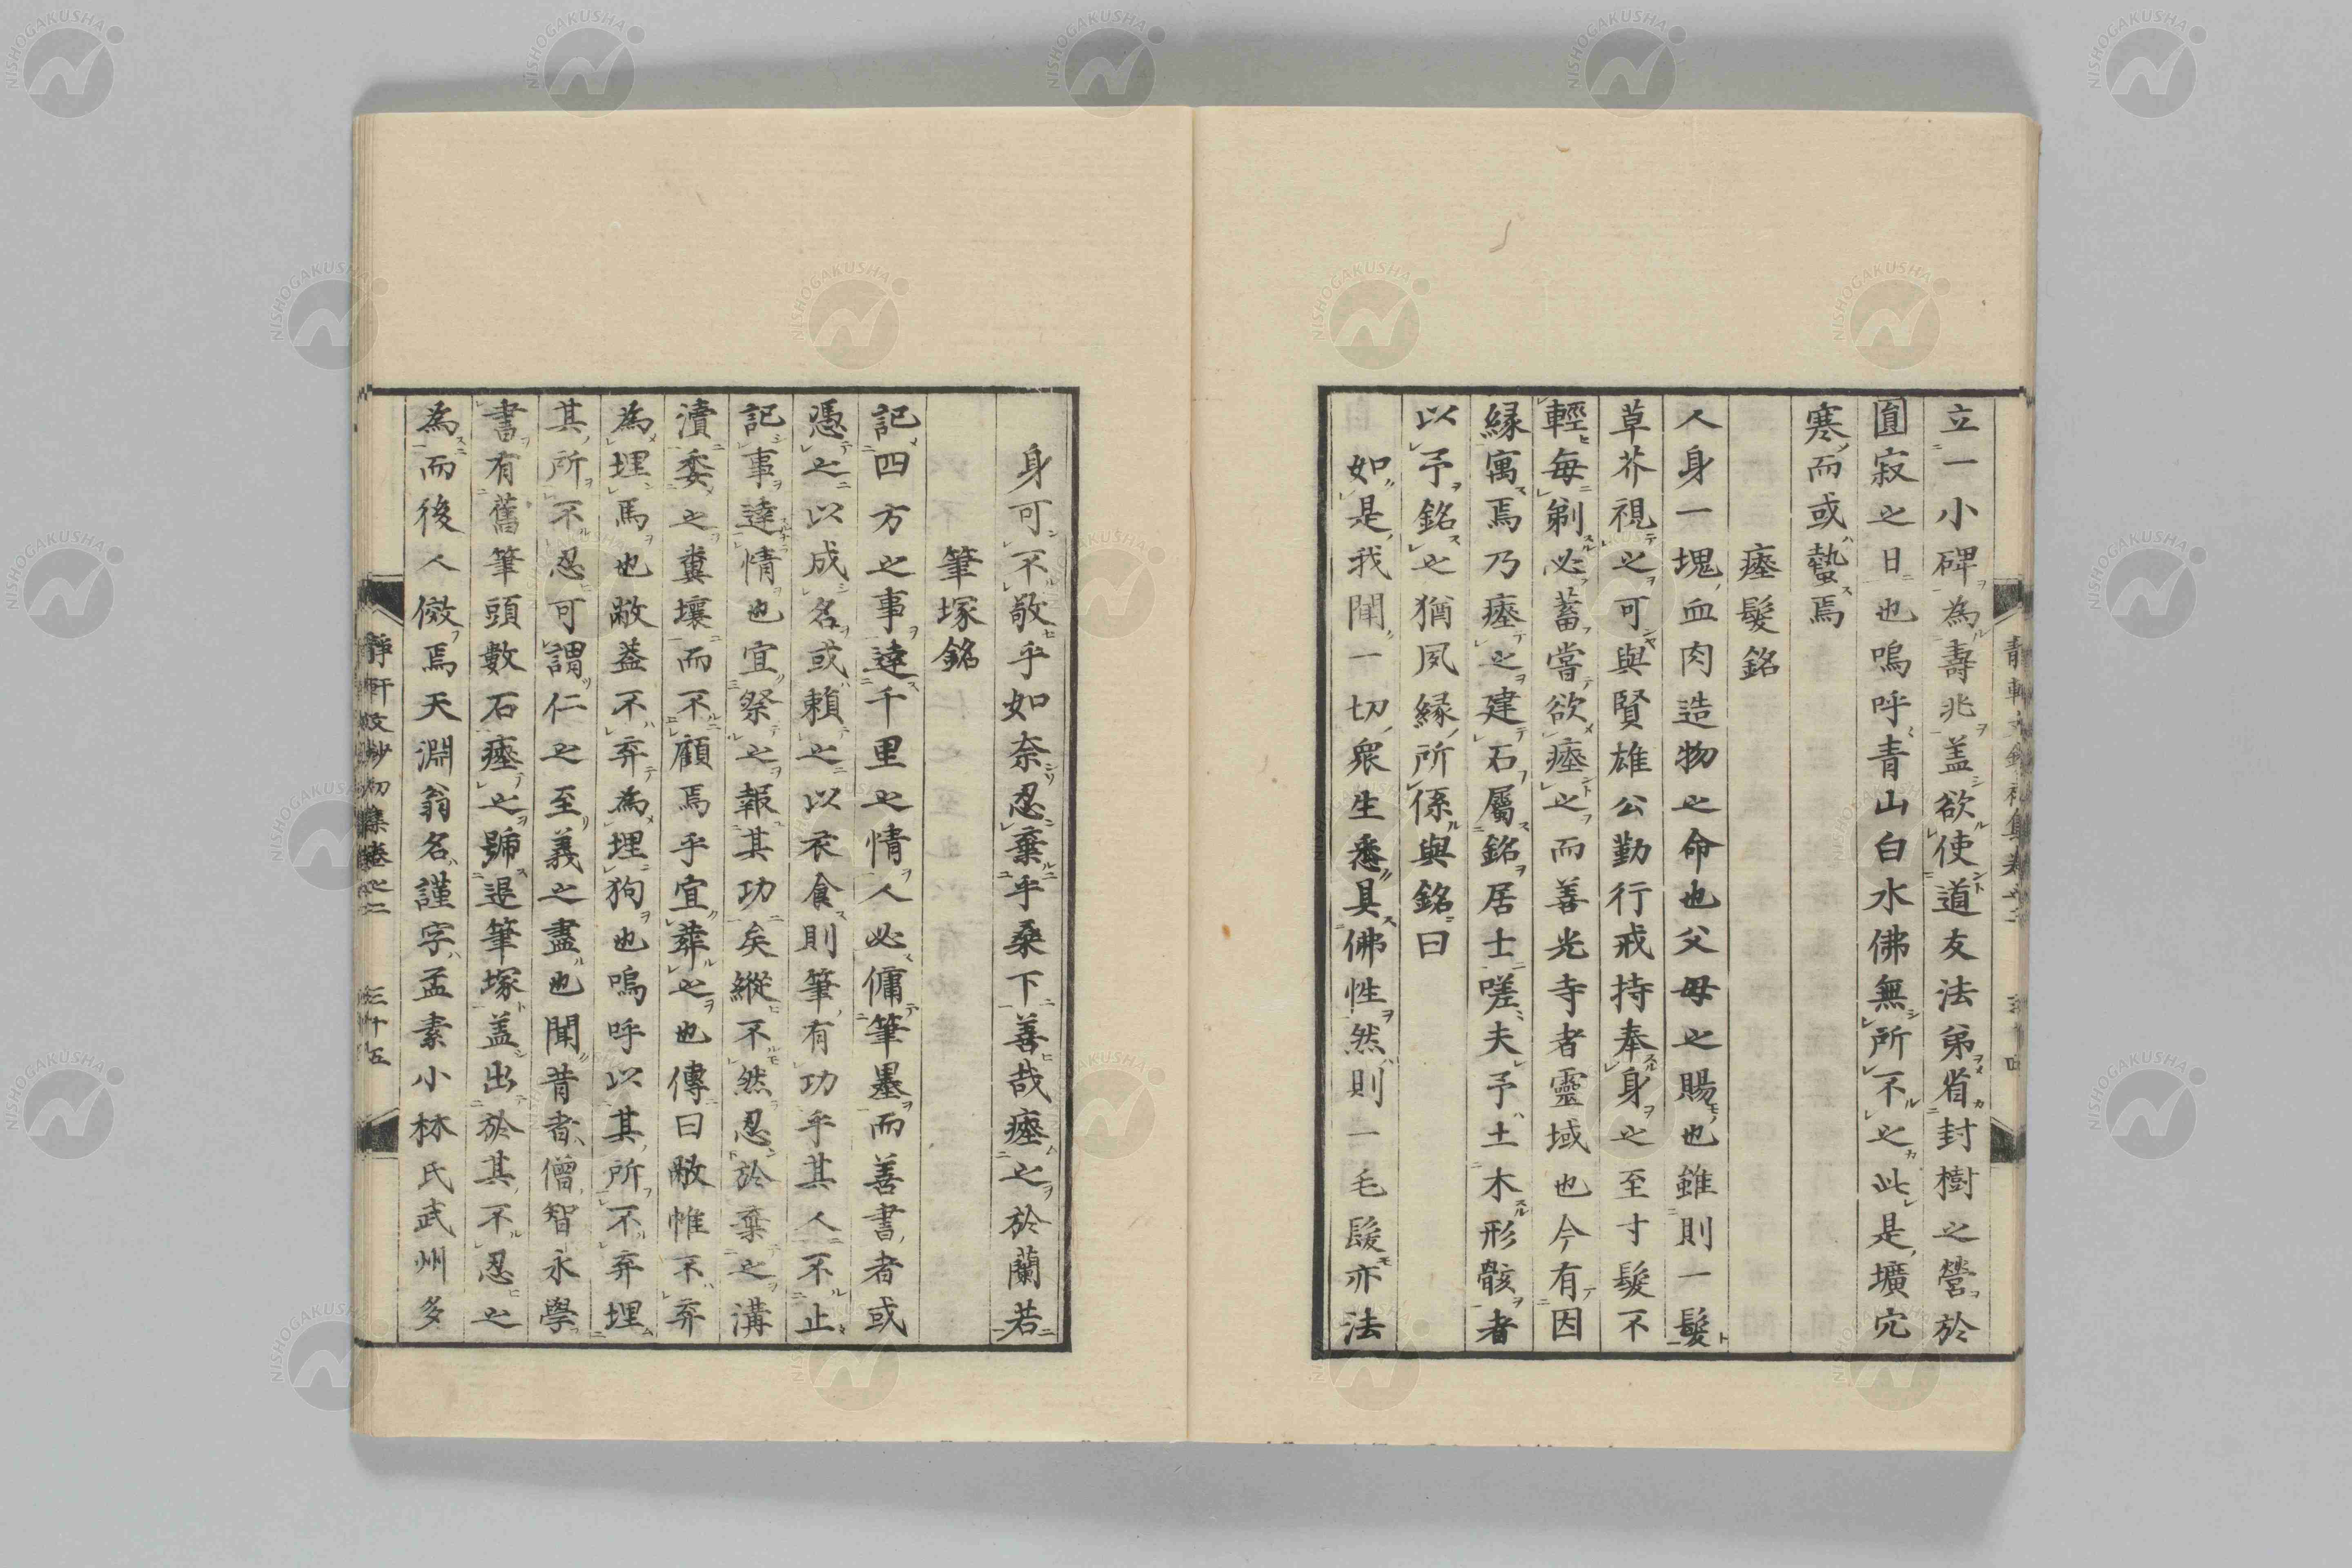 立一小碑為壽兆盖欲使道友法弟省封樹之營於
圓寂之日也嗚呼青山白水佛無所不之此是壙穴
寒而或蟄焉
瘞髮銘
人身一塊血肉造物之命也父母之賜也雖則一髮
草芥視之可與賢雄公勤行戒持奉身之至寸髮不
輕每剃必蓄嘗欲瘞之而善光寺者靈域也今有因
緣寓焉乃瘞之建石屬銘居士嗟夫予土木形骸者
以予銘之猶夙緣所係與銘曰
如是我聞一切衆生悉具佛性然則一毛髮亦法
身可不敬乎如奈忍棄乎桑下善哉瘞之於蘭若
筆塚銘
記四方之事達千里之情人必傭筆墨而善書者或
憑之以成名或賴之以衣食則筆有功乎其人不止
記事達情也宜祭之報其功矣縱不然忍於棄之溝
瀆委之糞壤而不顧焉乎宜葬之也傳曰敝帷不弃
為埋馬也敝蓋不弃為埋狗也嗚呼以其所不弃埋
其所不忍可謂仁之至義之盡也聞昔者僧智永學
書有舊筆頭數石瘞之號退筆塚盖出於其不忍之
為而後人傚焉天淵翁名謹字孟素小林氏武州多
靜軒文鈔初集卷之二 三十五
NISHOGAKUSHA